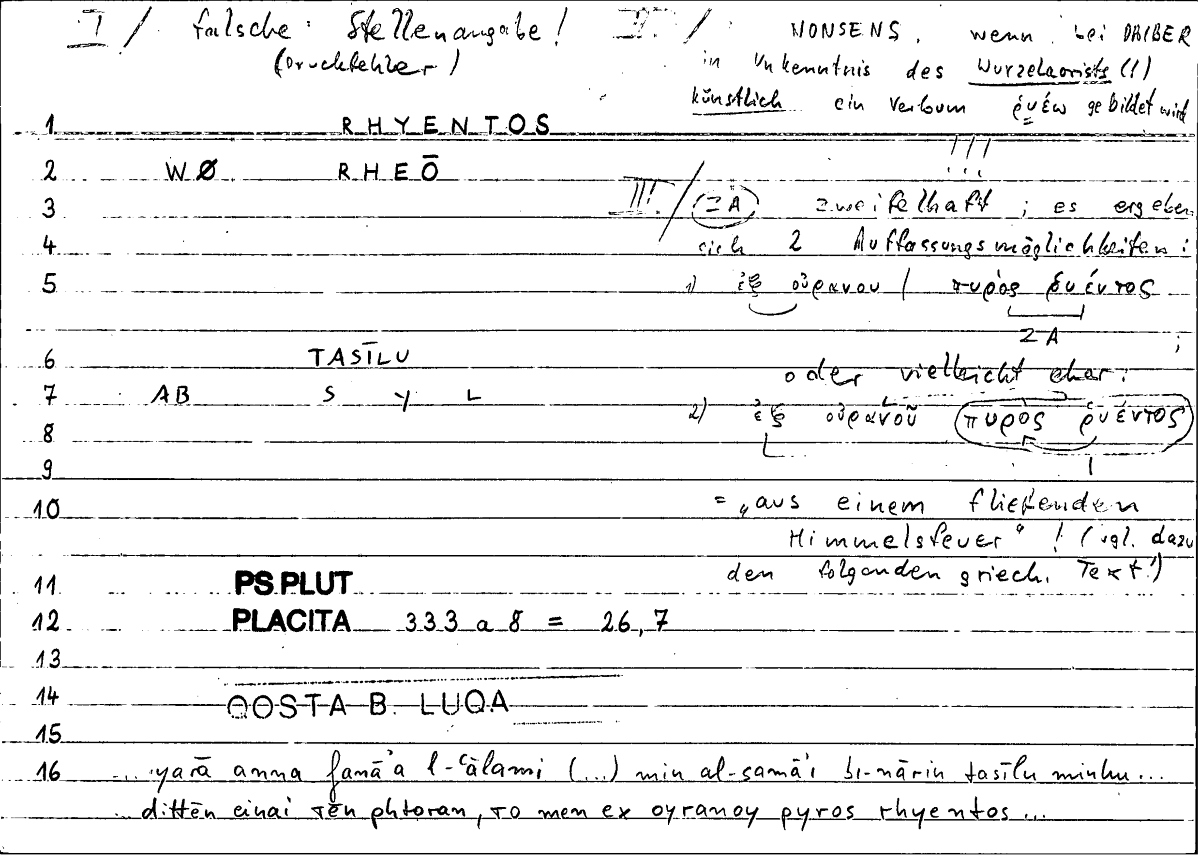 I / falsche Stellenangabe!
(Druckfehler)
II. / NONSENS, wenn bei DAIBER
in Unkenntnis des Wurzelaorists (!)
künstlich ein Verbum ῥυέω gebildet wird
!!!
1 RHYENTOS
2 WØ RHEŌ
3
III. / (ZÄ) zweifelhaft ; es ergeben
4
sich 2 Auffassungsmöglichkeiten :
5
1) ἐξ οὐρανου / πυρὸς ῥυέντος
ZA ;
6 TASĪLU
oder vielleicht eher:
7 AB S Y L
2) ἐξ οὐρανοῦ πυρος ῥυέντος
8
9
10
= „aus einem fließenden
Himmelsfeuer“ ! (vgl. dazu
den folgenden griech. Text!)
11 PS.PLUT
12 PLACITA 333 a 8 = 26,7
13
14 QOSTA B. LUQA
15
16 ... yarā anna fanā'a l-ʿālami (...) min al-samā'i bi-nārin tasīlu minhu...
... dittēn einai τēn phtoran, τo men ex oyranoy pyros rhyentos ...